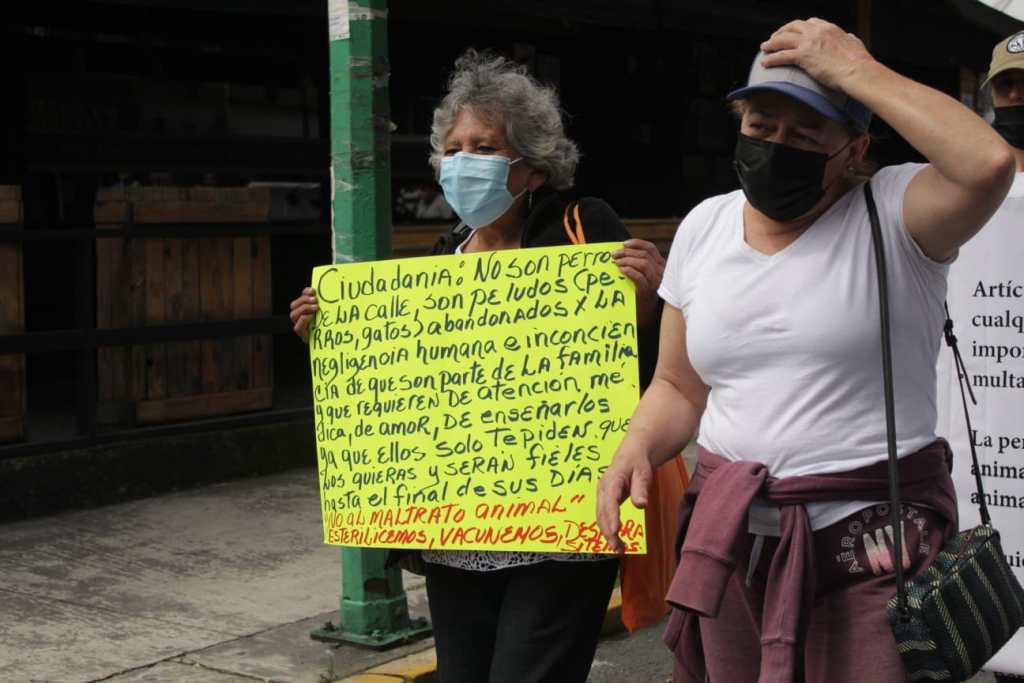 Ciudadanía: No son perros
de la calle, son peludos (pe-
rros, gatos) abandonados x la
negligencia humana e inconcien
cia de que son parte de la familia
y que requieren de atención mé
dica, de amor, de enseñarlos
ya que ellos solo te piden que
los quieras y serán fieles
hasta el final de sus días
"NO AL MALTRATO ANIMAL"
ESTERILICEMOS, VACUNEMOS, DESPARA
SITEMOS.
AÉROPOSTA
NY
Artíc
cualq
impor
multa
La per
anima
anima